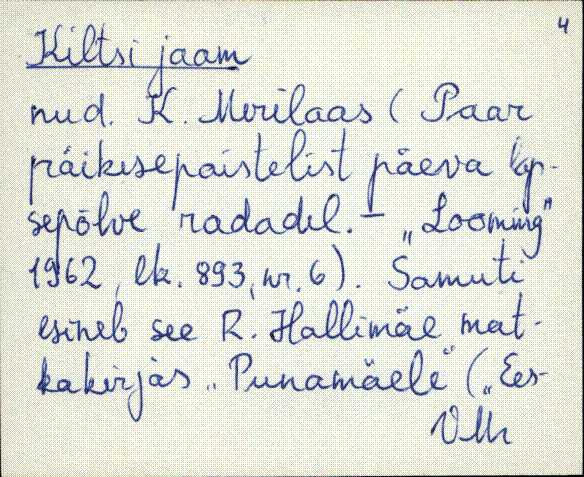 4
Kiltsi jaam
nud. K. Merilaas ( Paar
päikesepaistelist päeva lap-
sepõlve radadel. – „Looming"
1962, lk. 893, nr. 6). Samuti
esineb see R. Hallimäe mat-
kakirjas „Punamäele" („Ees-